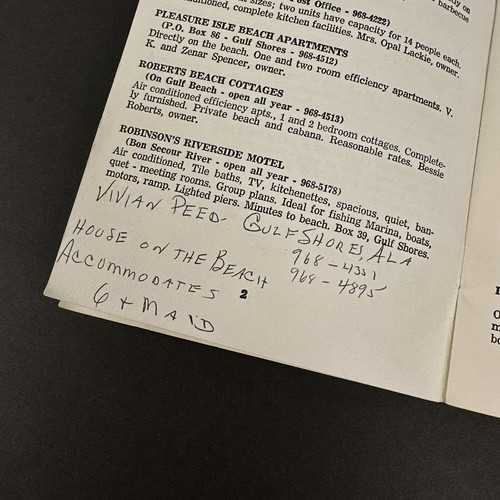 sizes; two units have capacity for 14 people each.
conditioned, complete kitchen facilities. Mrs. Opal Lackie, owner.
PLEASURE ISLE BEACH APARTMENTS
(P.O. Box 86 - Gulf Shores - 968-4512)
Directly on the beach. One and two room efficiency apartments. V.
K. and Zenar Spencer, owner.
ROBERTS BEACH COTTAGES
(On Gulf Beach - open all year - 968-4513)
Air conditioned efficiency apts., 1 and 2 bedroom cottages. Complete-
ly furnished. Private beach and cabana. Reasonable rates. Bessie
Roberts, owner.
ROBINSON'S RIVERSIDE MOTEL
(Bon Secour River - open all year - 968-5178)
Air conditioned, Tile baths, TV, kitchenettes, spacious, quiet, ban-
quet - meeting rooms. Group plans. Ideal for fishing Marina, boats,
motors, ramp. Lighted piers. Minutes to beach. Box 39, Gulf Shores.
VIVIAN PEED - GULF SHORES, ALA
968-4351
968-4895
HOUSE ON THE BEACH
ACCOMMODATES
6 + MAID
2